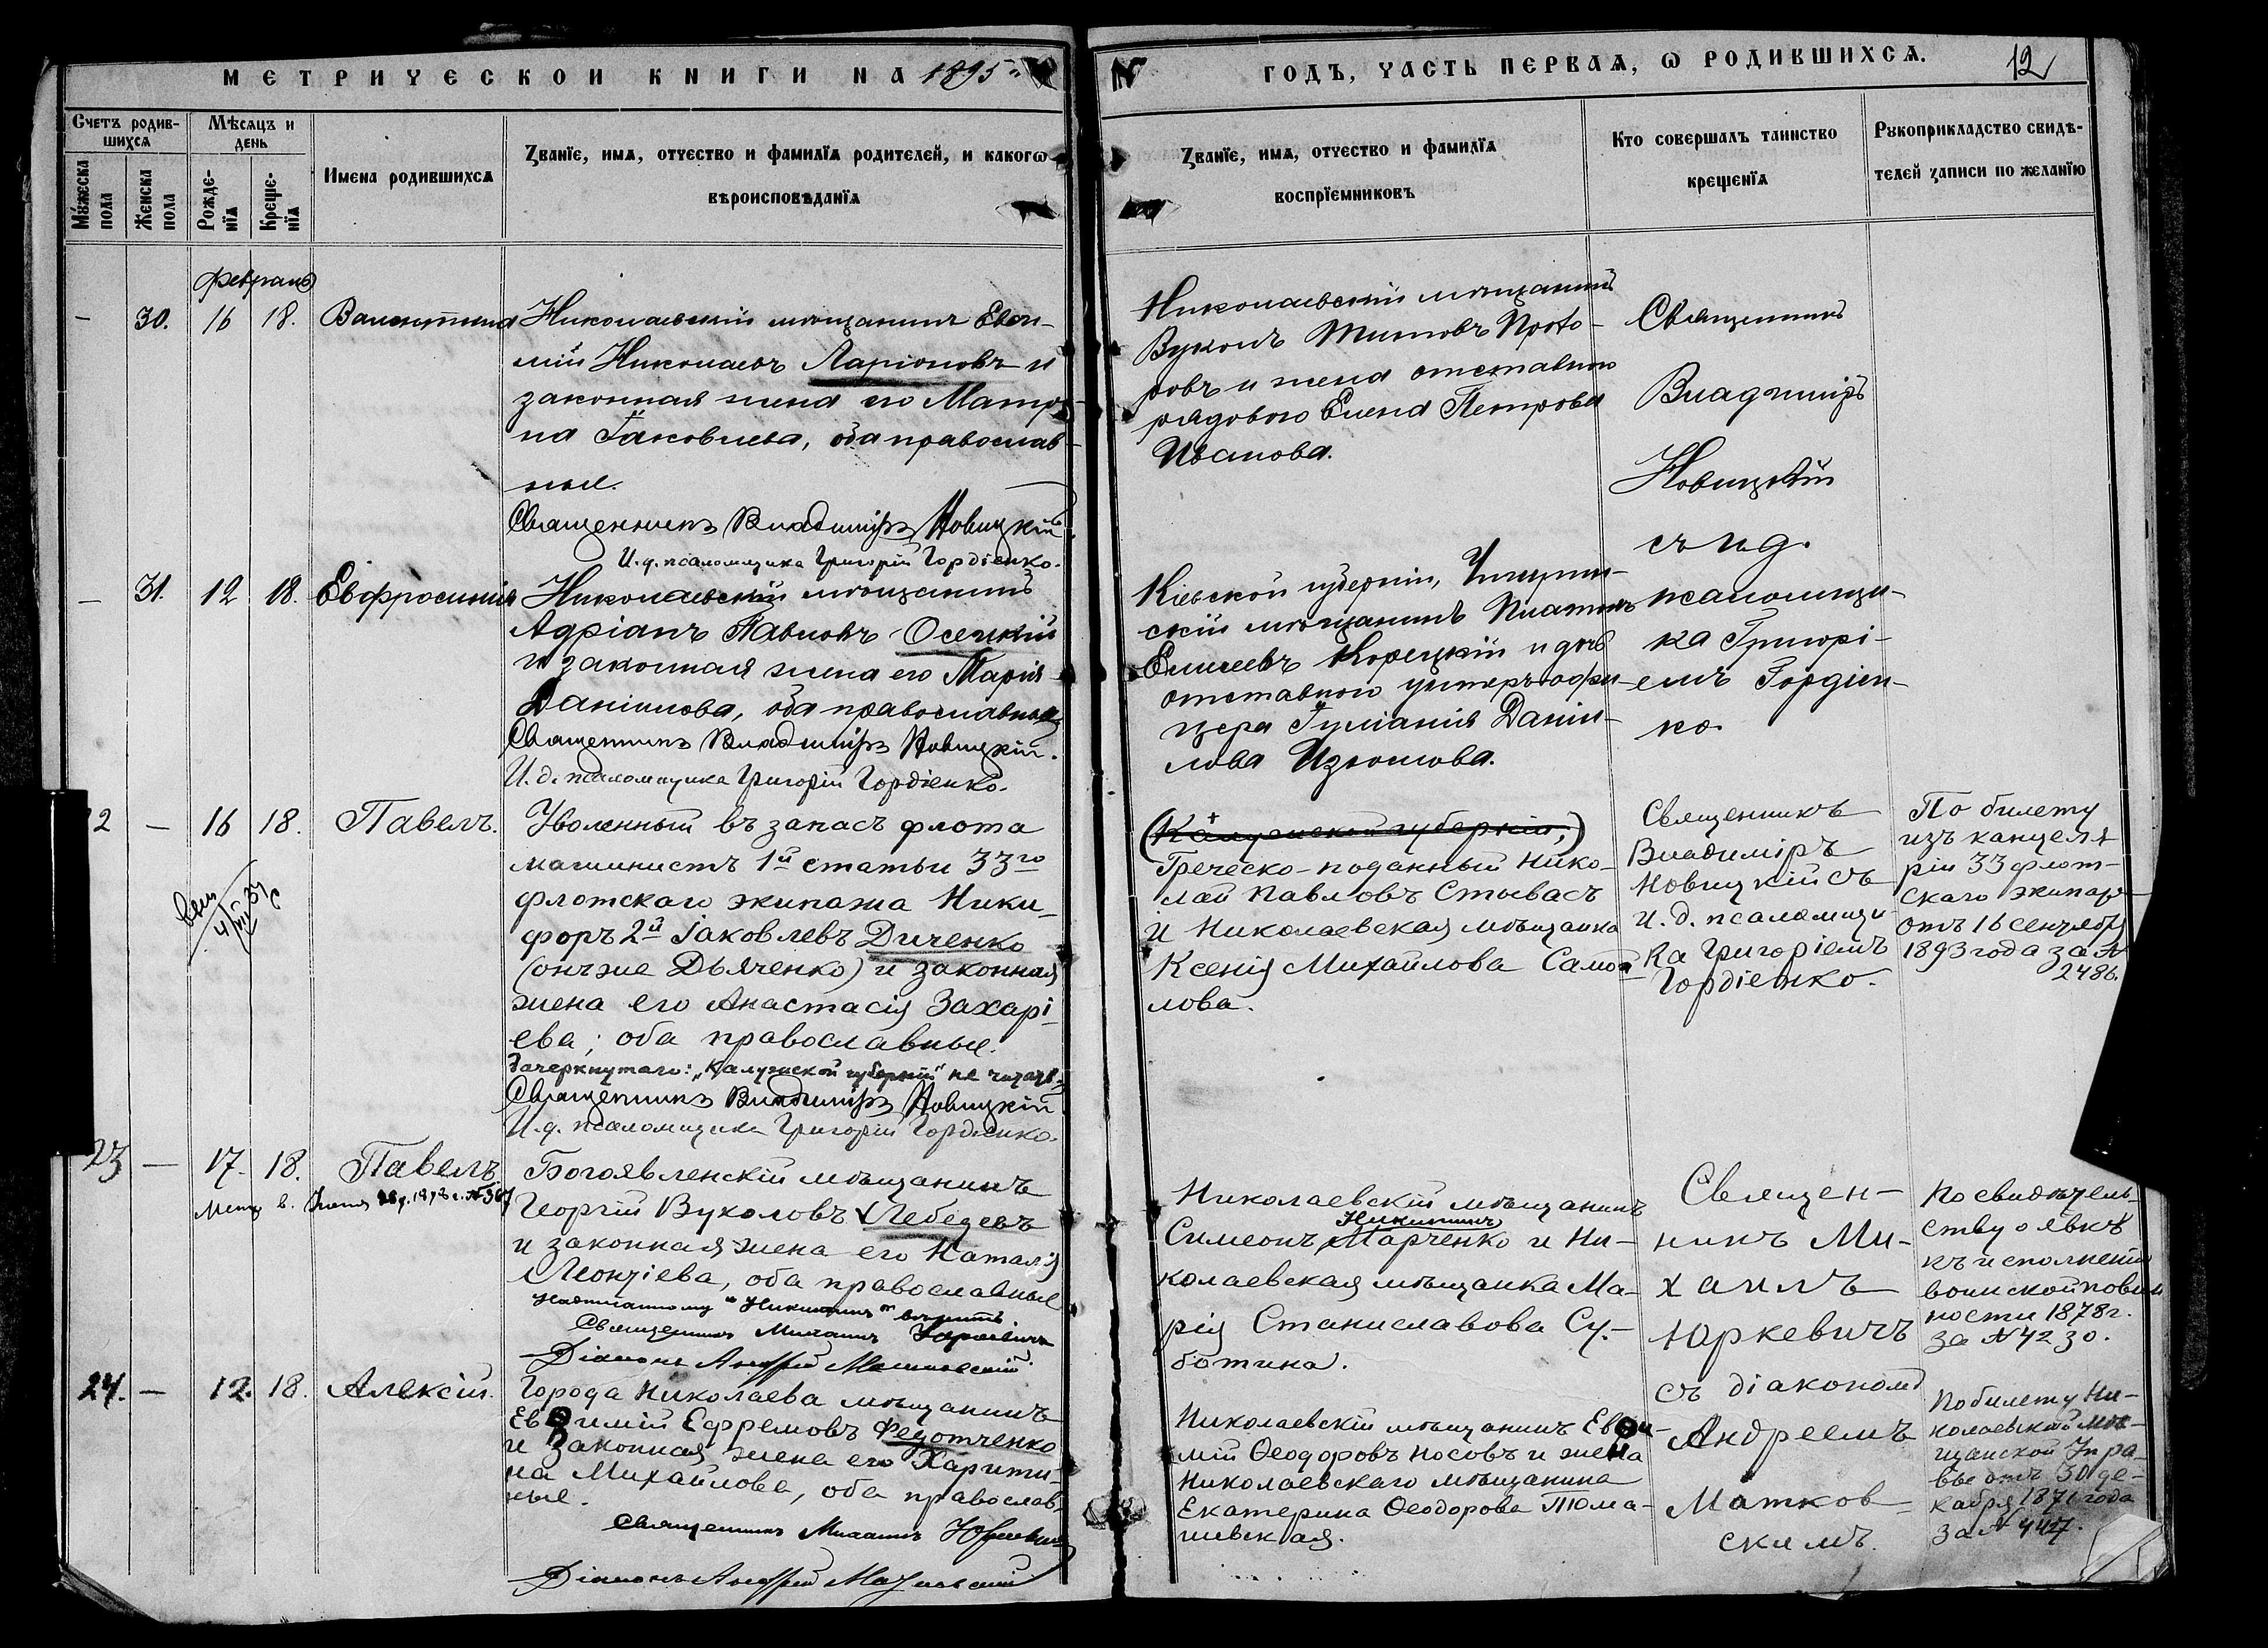 МЕТРИЧЕСКОЙ КНИГИ НА 1895
ГОДЪ, ЧАСТЬ ПЕРВАЯ, Ѡ РОДИВШИХСЯ.
12
Счетъ родив-
шихся
Мѣсяцъ и
день
Мужеска
пола
Женска
пола
Рожде-
нїя
Креще-
нїя
Имена родившихся
Званїе, имя, отчество и фамилїя родителей, и какогѡ
вѣроисповѣданїя
Званїе, имя, отчество и фамилїя
воспрїемниковъ
Кто совершалъ таинство
крещенїя
Рукоприкладство свидѣ-
телей записи по желанїю
Февраль
— 30. 16 18. Валентина
Николаевскій мѣщанинъ Евѳи-
мій Николаевъ Ларіоновъ и
законная жена его Матро-
на Іаковлева, оба православ-
ные.
Священникъ Владиміръ Новицкій.
И. д. псаломщика Григорій Гордіенко.
Николаевскій мѣщанинъ
Вуколъ Титовъ Прото-
ровъ и жена отставного
рядового Елена Петрова
Иванова.
Священникъ
Владиміръ
Новицкій
съ и д.
псаломщи-
ка Григорі-
емъ Гордіен-
ко.
— 31. 12 18. Евфросинія
Николаевскій мѣщанинъ
Адріанъ Павловъ Осецкій
и законная жена его Марія
Даніилова, оба православные
Священникъ Владиміръ Новицкій.
И. д. псаломщика Григорій Гордіенко.
Кіевской губерніи, Чигирин-
скій мѣщанинъ Платонъ
Елисеевъ Корецкій и дочь
отставного унтеръ-офи-
цера Іуліанія Даніи-
лова Изюмова.
22 — 16 18. Павелъ.
Уволенный въ запасъ флота
машинистъ 1й статьи 33го
флотскаго экипажа Ники-
форъ 2й Іаковлевъ Диченко
(онъ же Дьяченко) и законная
жена его Анастасія Захарі-
ева; оба православные.
Зачеркнутаго: „Калужской губерніи" не читать.
Священникъ Владиміръ Новицкій
И. д. псаломщика Григорій Гордіенко.
(Калужской губерніи,)
Греческо-поданный Нико-
лай Павловъ Стывасъ
и Николаевская мѣщанка
Ксенія Михайлова Самой-
лова.
Священникъ
Владиміръ
Новицкій съ
и. д. псаломщи-
ка Григоріемъ
Гордіенко.
По билету
изъ канцеля
ріи 33 флот-
скаго экипаж
отъ 16 сентября
1893 года за №
2486.
23 — 17. 18. Павелъ
Богоявленскій мѣщанинъ
Георгій Вуколовъ Лебедевъ
и законная жена его Наталія
Леонтіева, оба православные
Надписанному "Никитинъ" вѣрить.
Священникъ Михаилъ Юркевичъ
Діаконъ Андрей Матковскій.
Николаевскій мѣщанинъ
Никитинъ
Симеонъ Марченко и Ни-
колаевская мѣщанка Ма-
рія Станиславова Су-
ботина.
Священ-
никъ Ми-
хаилъ
Юркевичъ
съ діакономъ
Андреемъ
Матков-
скимъ.
По свидѣтель-
ству о явкѣ
къ исполненію
воинской повин
ности 1878 г.
за № 4230.
24. — 12. 18. Алексій.
Города Николаева мѣщанинъ
Евѳимій Ефремовъ Федотченко
и законная жена его Харити-
на Михайлова, оба православ-
ные.
Священникъ Михаилъ Юркевичъ
Діаконъ Андрей Матковскій
Николаевскій мѣщанинъ Евѳи-
мій Ѳеодоровъ Носовъ и жена
Николаевскаго мѣщанина
Екатерина Ѳеодорова Тома-
шевская.
По билету Ни-
колаевской мѣ-
щанской Упра-
вы отъ 30 де-
кабря 1871 года
за № 4427.